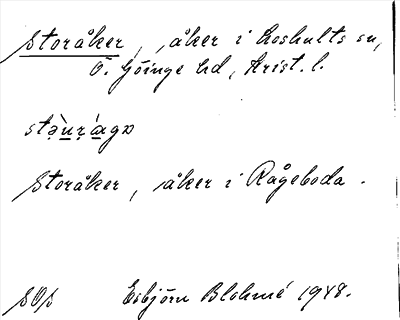 Storåker, åker i Loshults sn,
Ö. Göinge hd, Krist. l.
Storåker, åker i Rågeboda.
SOS Esbjörn Blohmé 1948.